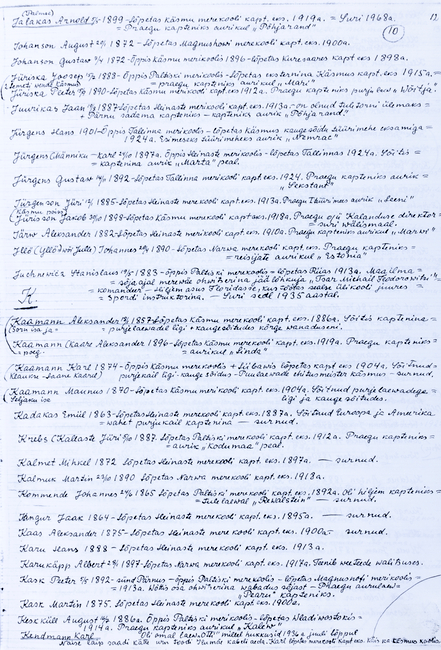 (Palmer)
Jalakas Arnold 1899 - Lõpetas Käsmu merekooli kapt. eks. 1919a. = Suri 1968a.
= Praegu kapteniks aurikul "Põhjarand"
10
Johanson August 1872 - Lõpetas Magnushowi merekooli eks. 1900a.
Johanson Gustaw 1872 - õppis Käsmu merekoolis 1896 - Lõpetas Kuressaares kapt eks 1898a.
Jüriska Joosep 1888 - Õppis Paldiski merekoolis - Lõpetas eksternina Käsmus kapt. eks. 1915a. =
= praegu kapteniks aurikul "Mari"
Jüriska Peeter 1890 - Lõpetas Käsmu merekooli kapt eks 1912a. Praegu kapteniks purjelaew "Wõitja"
Juurikas Jaan 1887 Lõpetas Heinaste merekooli kapt. eks. 1913a. - on olnud tuletorni ülemaks =
+ Pärnu sadama kapteniks - kapteniks aurik "Põhjarand".
Jürgens Hans 1901 - Õppis Tallinna merekoolis - Lõpetas Käsmus kaugesõidu tüürimehe eksamiga =
= 1924a. Esimeseks tüürimeheks aurik "Nemrac"
Jürgens (Hämiku - Karl 1897a. Õppis Heinaste merekoolis - Lõpetas Tallinnas 1924a. Sõitis =
= kapteniks aurik "Marta" peal.
Jürgens Gustaw 1892 - Lõpetas Tallinna merekooli kapt. eks. 1924. Praegu kapteniks aurik =
= "Sekstant"
Jürgenson Jüri 1885 - Lõpetas Heinaste merekooli kapt. eks. 1913a. Praegu tüürimees aurik "Leeni"
(Käsmu poiss)
Jürisson Jakob 1898 - Lõpetas Käsmu merekooli kapt eks 1918a. Praegu oji Kalanduse direktor =
= suri wälismaal.
Järw Aleksander 1882 - Lõpetas Heinaste merekooli kapt. eks. 1910a. Praegu kapteniks aurikul "Marww"
Jllõ (Üllõ Johannes 1890 - Lõpetas Narwa merekooli kapt. eks. Praegu kapteniks =
= reisijate aurikul "Estonia"
Juchnewicz Stanislaus 1883 - õppis Paldiski merekoolis = lõpetas Riias 1913a. Maailma =
= sõjaajal merewäe ohwitserina jäälõhkuja "Tsar Mihail Feodorowitsi" =
= komandör - Hiljem asus Floridasse, kus töötas sealse ülikooli juures =
= spordi instruktorina. - Suri sedl 1935 aastal.
K.
Kadmann Aleksander 1857 Lõpetas Heinaste merekooli kapt. eks. 1886a. Sõitis kaptenina =
= purjelaewadel ligi + kaugesõitudes kõrge wanaduseni.
Kaamann (Kaare Aleksander 1896 - Lõpetas Heinaste merekooli kapt. eks. 1919a. Praegu kapteniks =
= poeg. = aurikul "Linda"
Kaamann Karl 1874 - Õppis Käsmu merekoolis + Liibawis lõpetas kapt eks 1904a. Sõitnud =
= purjekail ligi - kauge sõitus - Puulaewade ehitusmeister Käsmus - surnud.
Kaamann Maunus 1870 - Lõpetas Käsmu merekooli kapt. eks. 1904a. Sõitnud purjelaewadega =
ligi ja kauge sõitudes.
Kadakas Emiil 1863 - Lõpetas Heinaste merekooli kapt. eks. 1887a. Sõitnud Euroopa ja Amerika =
= wahet purjekail kaptenina — surnud.
Krebs (Kallaste Jüri 1887 Lõpetas Paldiski merekooli kapt. eks. 1912a. Praegu kapteniks =
= aurik "Kodumaa" peal.
Kalmet Mihkel 1872 Lõpetas Heinaste merekooli kapt. eks. 1897a. — surnud.
Kalmuk Martin 1890 Lõpetas Narwa merekooli kapt. eks. 1918a.
Kommende Johannes 1865 Lõpetas Paldiski merekooli kapt. eks. 1892a. Oli hiljem kapteniks =
= Tulelaewal "Rewalstein" — surnud.
Kangur Jaak 1864 - Lõpetas Heinaste merekooli kapt. eks. 1895a. — surnud.
Kaas Aleksander 1875 - Lõpetas Heinaste merekooli kapt. eks. 1900a. - surnud.
Karu Hans 1888 — Lõpetas Heinaste merekooli kapt. eks. 1913a.
Karukäpp Albert 1897 - Lõpetas Narwa merekooli kapt. eks. 1917a. Teenib weeteede walitsuses.
Kask Peeter 1892 - sünd Pärnus - õppis Paldiski merekoolis - lõpetas Magnushofi merekoolis =
= 1913a. Wõttis osa ohwitserina wabadus sõjast - Praegu aurulaewa =
= "Pearu" kapteniks.
Kask Martin 1875. Lõpetas Heinaste merekooli kapt. eks. 1900a.
Kesküll August 1886a. Õppis Paldiski merekoolis - Lõpetas Wladiwostokis =
= 1914a. Praegu kapteniks aurikul "Kalew"
Bendmann Karl